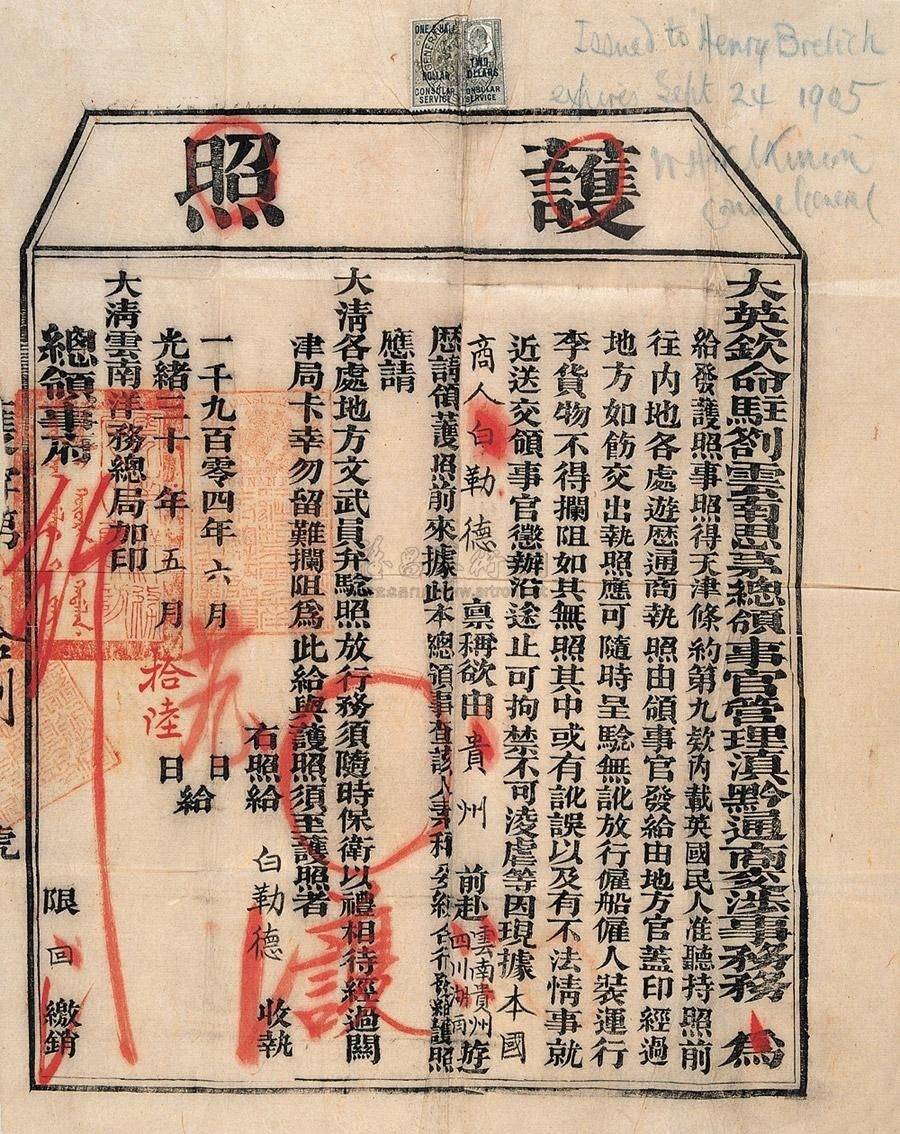 ONE & HALF
DOLLAR
CONSULAR
SERVICE
TWO
DOLLARS
CONSULAR
SERVICE
Issued to Henry Brelich
expires Sept 24 1905
Consul General
護照
大英欽命駐劄雲南思茅總領事官管理滇黔通商交涉事務 為
給發護照事照得天津條約第九款內載英國民人准聽持照前
往內地各處遊歷通商執照由領事官發給由地方官蓋印經過
地方如飭交出執照應可隨時呈驗無訛放行僱船僱人裝運行
李貨物不得攔阻如其無照其中或有訛誤以及有不法情事就
近送交領事官懲辦沿途止可拘禁不可淩虐等因現據本國
商人白勒德 稟稱欲由貴州 前赴雲南貴州四川湖南遊
歷請領護照前來據此本總領事查該人
應請
大清各處地方文武員弁驗照放行務須隨時保衛以禮相待經過關
津局卡幸勿留難攔阻為此給與護照須至護照者
右照給 白勒德 收執
一千九百零四年六月 日
光緒三十年五月拾陸日給
大清雲南洋務總局加印
總領事府 限回繳銷
護